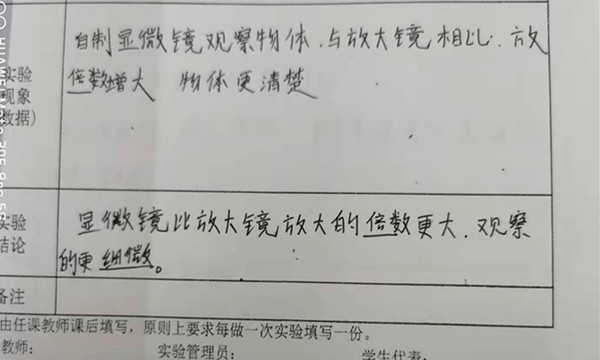 自制显微镜观察物体，与放大镜相比，放
倍数增大 物体更清楚
实验
现象
数据)
显微镜比放大镜放大的倍数更大，观察
的更细微。
实验
结论
备注
由任课教师课后填写，原则上要求每做一次实验填写一份。
教师： 实验管理员： 学生代表：